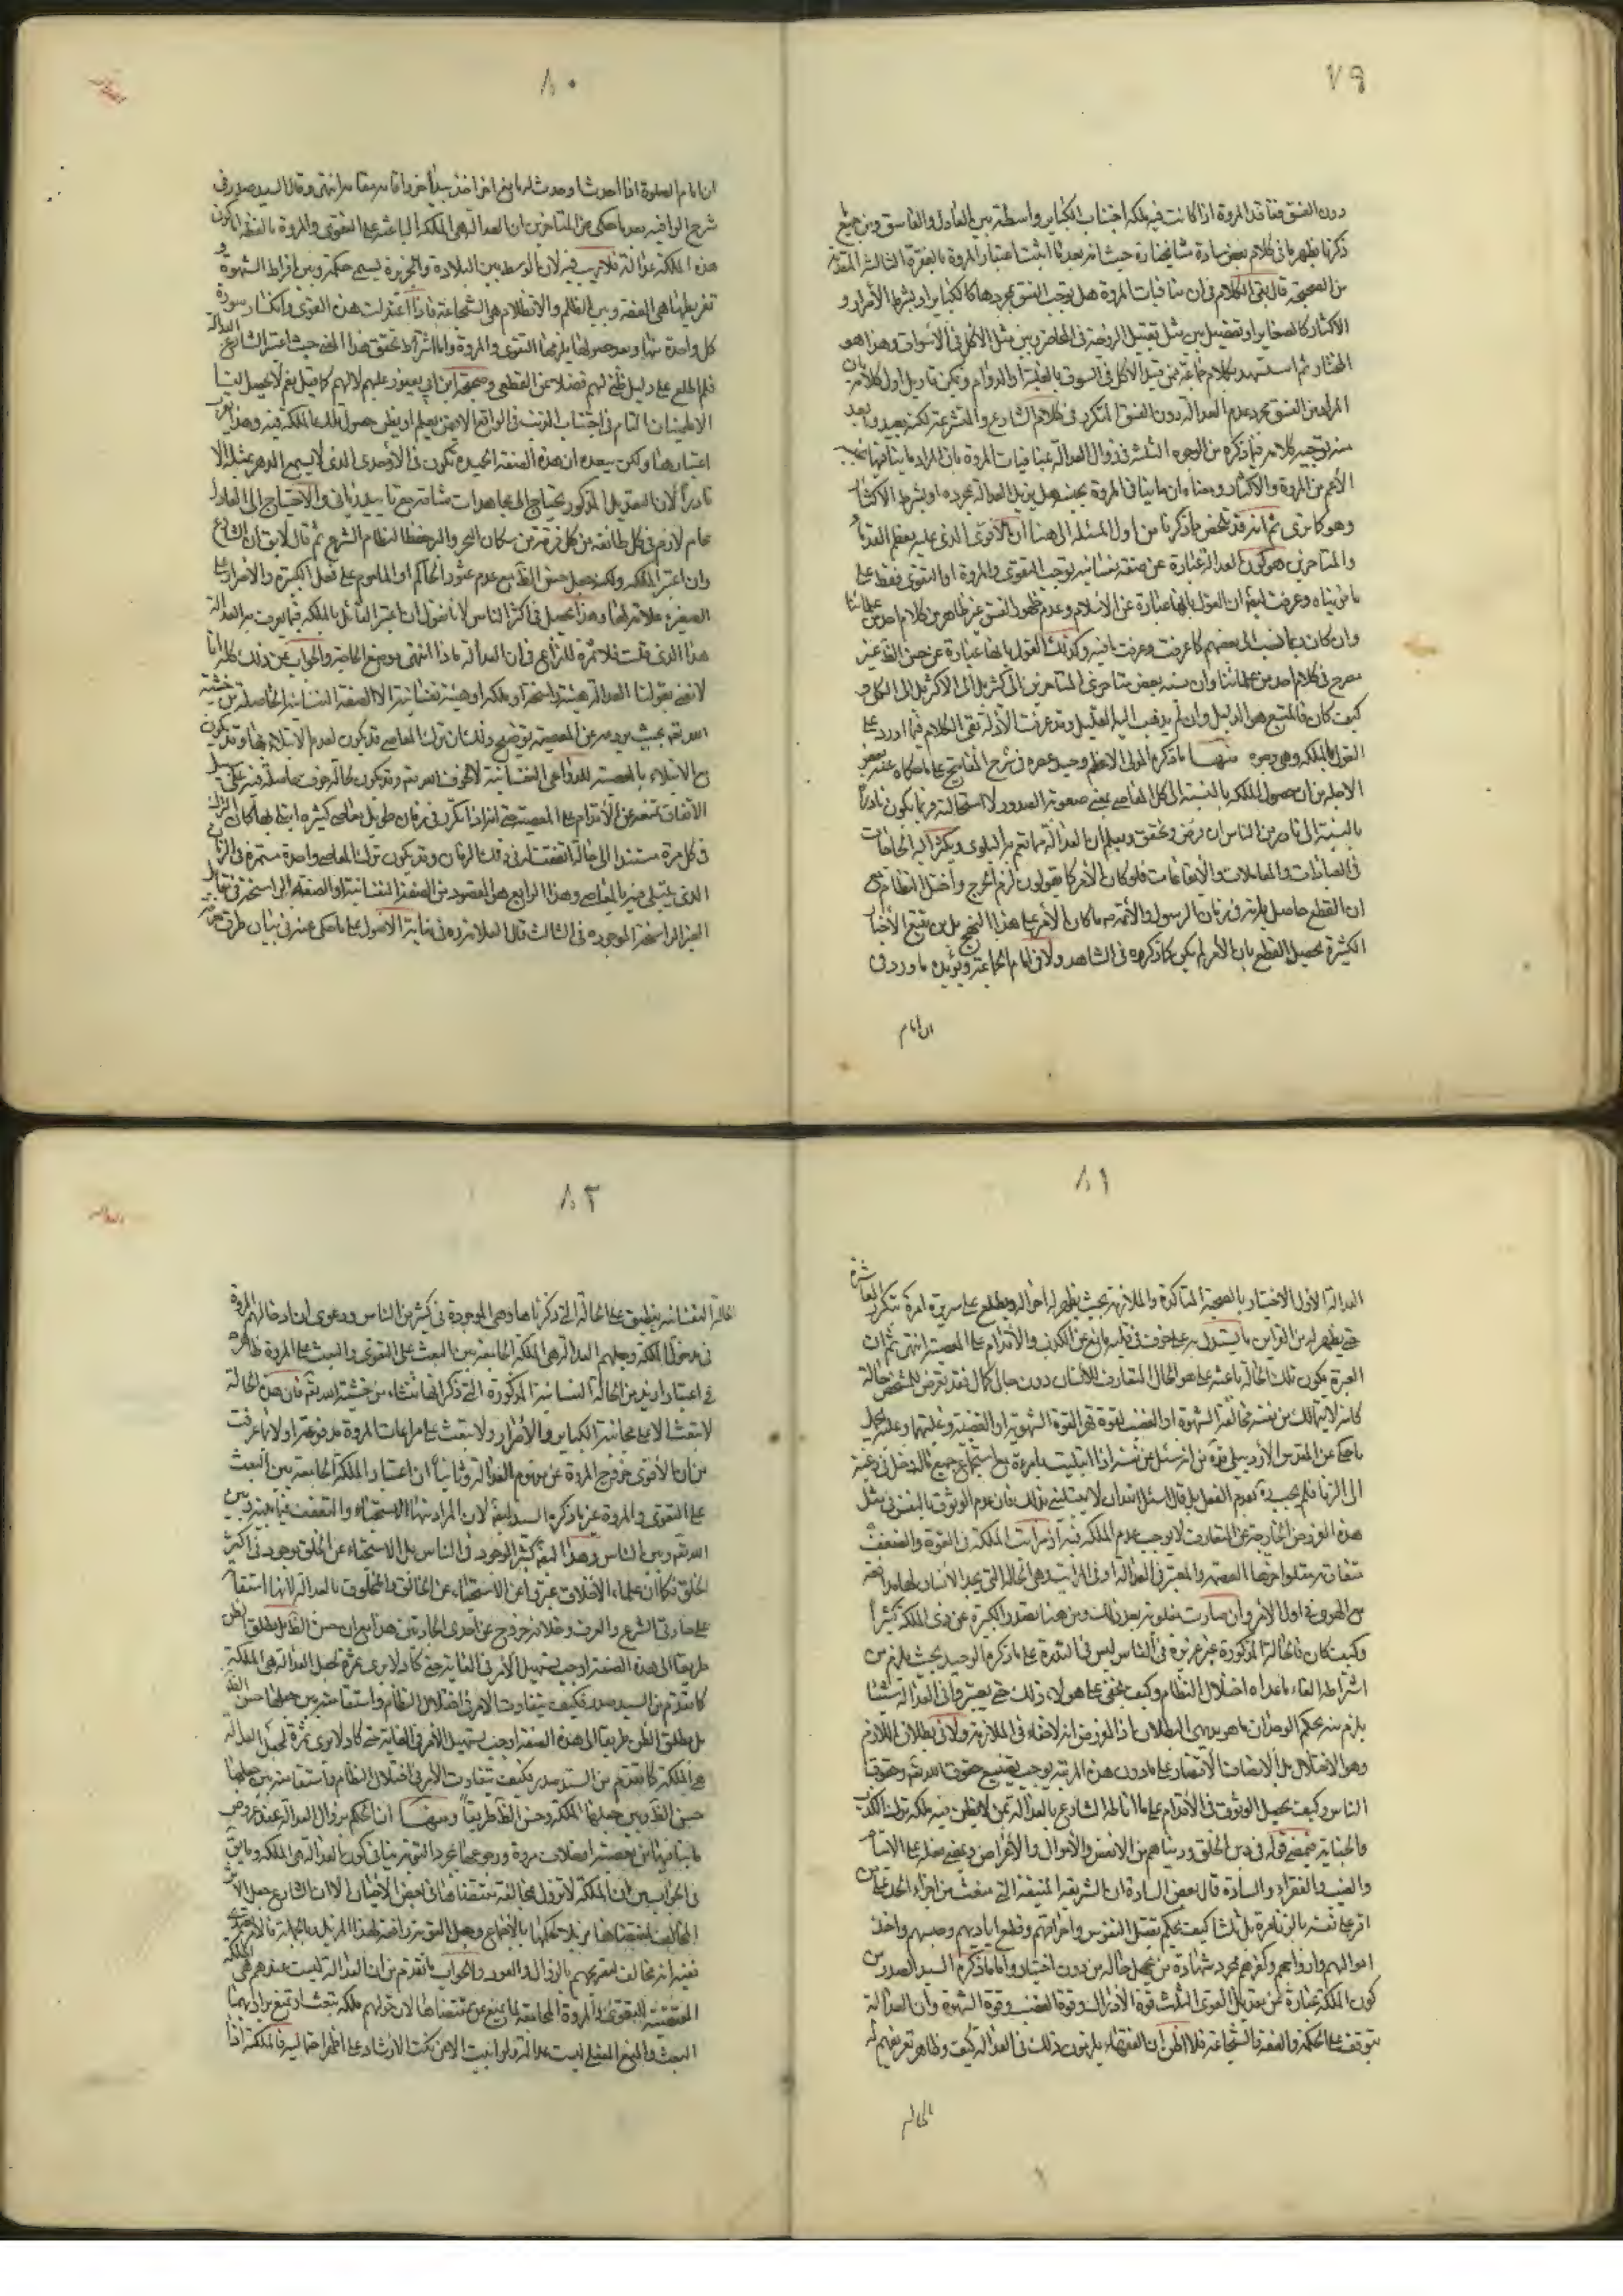 ٧٩
دون الفسق ففاقد المروة اذا كانت فيه ملكة اجتناب الكباير واسطة بين العادل والفاسق وبين جميع
ذكرنا يظهر ما فى كلام بعض سادة مشايخنا حيث انه بعد ما اثبت اعتبار المروة بالفقرة الثالثة المتقدمة
من الصحيحة قال بقى الكلام فى ان منافيات المروة هل يوجب الفسق بمجردها كالكباير او بشرط الاصرار و
الاكثار كالصغاير او تفصيل بين مثل تقبيل الزوجة فى المحاضر وبين مثل الاكل فى الاسواق وهذا هو
المختار ثم استشهد بكلام جماعة ممن قيد الاكل فى السوق بالغلبة او الدوام ويمكن تاويل اول كلامه بان
المراد من الفسق مجرد عدم العدالة دون الفسق المتكرر فى كلام الشارع والمتشرعة لكنه بعيد وابعد
منه توجيه كلامه فيما ذكره من الوجوه الثلثة فى زوال العدالة بمنافيات المروة بان المراد ما ينافيها
الاعم من المروة والاكثار ومعناه ان ما ينافى المروة بحيث هل يزيل العدالة بمجرده او بشرط الاكثار
وهو كما ترى ثم انه قد تلخص مما ذكرنا من اول المسئلة الى هنا ان الاقوى الذى عليه معظم القدماء
والمتاخرين هو كون العدالة عبارة عن صفة نفسانية توجب التقوى والمروة او التقوى فقط على
ما من بيناه وعرفت ايضا ان القول بانها عبارة عن الاسلام وعدم ظهور الفسق غير ظاهر من كلام احد من علمائنا
وان كان ربما نسب الى بعضهم كما عرفت وعرفت ما فيه وكذلك القول بانها عبارة عن حسن الظاهر غير
مصرح فى كلام احد من علمائنا وان نسبه بعض متاخرى المتاخرين الى كثير بل الى الاكثر بل الى الكل و
كيف كان فالمتبع هو الدليل وان لم يذهب اليه الا القليل وقد عرفت الادلة بقى الكلام فيما اورد على
القول بالملكة وهى وجوه منها ما ذكره المولى الاعظم وحيد عصره فى شرح المفاتيح على ما حكاه عنه بعض
الاجلة من ان حصول الملكة بالنسبة الى كل المعاصى بمعنى صعوبة الصدور لا استحالته فربما يكون نادراً
بالنسبة الى نادر من الناس ان فرض وتحقق ويعلم ان العدالة مما تعم به البلوى ويكثر اليه الحاجات
فى العبادات والمعاملات والايقاعات فلو كان الامر كما يقولون لزم الحرج واختل النظام مع
ان القطع حاصل بانه فى زمان الرسول والائمة ما كان الامر على هذا النهج بل من تتبع الاخبار
الكثيرة يحصل القطع بان الامر لم يكن كما ذكروه فى الشاهد ولا فى امام الجماعة ويؤيده ما ورد فى
ان امام
٨٠
ان امام الصلوة اذا احدث او حدث له مانع اخر اخذ بيد اخر واقامه مقامه انتهى وقال السيد صدر فى
شرح الوافيه بعد ما حكى من المتاخرين ان العدالة هى الملكة الباعثة على التقوى والمروة ما لفظه اما كون
هذه الملكة عدالة فلا ريب فيه لان الوسط بين البلادة والجزيرة يسمى حكمة وبين افراط الشهوة و
تفريطها هى العفة وبين الظلم والانظلام هى الشجاعة فاذا اعتدلت هذه القوى وانكسار سورة
كل واحدة منها وبعد حصولها يلزمها التقوى والمروة واما اشتراط تحقق هذا المعنى حيث اعتبر الشارع العدالة
فلم اطلع على دليل ظنى لهم فضلا عن القطعى وصحيحة ابن ابى يعفور عليهم لا لهم كما قيل نعم لا يحصل لنا
الاطمينان التام فى اجتناب الذنب فى الواقع الا ممن يعلم او يظن حصول تلك الملكة فيه وهذا يقرب
اعتبارها ولكن يبعده ان هذه الصفة الحميدة تكون فى الاوحدى الذى لا يسمح الدهر بمثله الا
نادراً لان التعديل المذكور يحتاج الى مجاهدات شاقة مع تاييد ربانى والاحتياج الى العدل
عام لازم فى كل طائفة من كل فرقة من سكان البحر والبر حفظا لنظام الشرع ثم قال لا يق ان الشارع
وان اعتبر الملكة ولكنه جعل حسن الظاهر مع عدم عثور الحاكم او المأموم على فعل الكبيرة والاصرار على
الصغيرة علامة لها وهذا يحصل فى اكثر الناس لانا نقول ان اعتبر القائل بالملكة فيما يعرف به العدالة
هذا الذى قلت فلا ثمرة للنزاع فى ان العدالة ماذا انتهى موضع الحاجة والجواب عن ذلك كله انا
لا نعنى بقولنا العدالة هيئة راسخة او ملكة او هيئة نفسانية الا الصفة النفسانية الحاصلة من خشية
الله تعم بحيث يردعه عن المعصية توضيح ذلك ان ترك المعاصى قد يكون لعدم الابتلاء بها وقد يكون
مع الابتلاء بالمعصية للدواعى النفسانية لا لخوف الله تعم وقد يكون لحالة خوف حاصلة فيه على سبيل
الاتفاق تمنعه عن الاقدام على المعصية حتى انه اذا تكرر فى زمان طويل معاصى كثيرة ابتلى بها كان الترك
فى كل مرة مستندا الى حالة اتفقت له فى ذلك الزمان وقد يكون ترك المعاصى واحدة مستمرة فى الزمان
الذى يبتلى فيه بالمعاصى وهذا الرابع هو المقصود من الصفة النفسانية او الصفة الراسخة فى مقابل
الغير الراسخة الموجودة فى الثالث قال العلامة ره فى نهاية الاصول على ما حكى عنه فى بيان طرق معرفة
٨١
العدالة الاول الاختبار بالصحبة المتاكدة والملازمة بحيث يظهر له احواله ويطلع على سريرة امره بتكرر المعاشرة
حتى يظهر له من القراين ما يستدل به على خوف فى قلبه مانع عن الكذب والاقدام على المعصية انتهى ثم ان
العبرة بكون تلك الحالة باعثة على هو الحال المتعارف للانسان دون حال كمال فقد تعرض للشخص حالة
كانه لا يتمالك من نفسه مخالفة الشهوة او الغضب لقوة قهر القوة الشهوية او الغضبية وغلبتها وعليه يحمل
ما حكى عن المقدس الاردبيلى قدّه من انه سئل عن نفسه اذا ابتليت بامرءة مع استجماع جميع ما له دخل فى رغبته
الى الزنا فلم يجب ره بعدم الفعل بل قال اسئل الله ان لا يبتلينى بذلك فان عدم الوثوق بالنفس فى مثل
هذه الفروض الخارجة عن المتعارف لا يوجب عدم الملكة فيه اذ مراتب الملكة فى القوة والضعف
متفاوتة يتلو اخرها العصمة والمعتبر فى العدالة ادنى المراتب وهى الحالة التى يجد الانسان بها مدافعة
مع الهوى فى اول الامر وان صارت مغلوبة بعد ذلك ومن هنا يصدر الكبيرة عن ذى الملكة كثيراً
وكيف كان فالحالة المذكورة غير عزيزة فى الناس ليس فى الندرة على ما ذكره الوحيد بحيث يلزم من
اشتراطه القاء ما عداه اختلال النظام وكيف يخفى على هولاء ذلك حتى يعتبروا فى العدالة شيئا
يلزم منه بحكم الوجدان ما هو بديهى البطلان اذ المفروض انه لا خفاء فى الملازمة ولا فى بطلان اللازم
وهو الاختلال بل الانصاف ان الاقتصار على ما دون هذه المرتبة يوجب تضييع حقوق الله تعم وحقوق
الناس وكيف يحصل الوثوق فى الاقدام على ما اناطه الشارع بالعدالة بمن لا يظن فيه ملكة ترك الكذب
والخيانة فيمضى قوله فى دين الخلق ودنياهم من الانفس والاموال والاعراض ويمضى فعله على الايتام
والغيب والفقراء والسادة قال بعض السادة ان الشريعة المنيفة التى منعت من اجراء الحد على من
اقر على نفسه بالزنا مرة بل ثلثا كيف يحكم بقتل النفوس واهراقهم وقطع اياديهم وحبسهم واخذ
اموالهم وارواحهم وكفرهم بمجرد شهادة من يجهل حاله من دون اختبار واما ما ذكره السيد الصدر من
كون الملكة عبارة عن تعديل القوى الثلث قوة الادراك وقوة الغضب وقوة الشهوة وان العدالة
تتوقف على الحكمة والعفة والشجاعة فلا اظن ان الفقهاء يلتزمون ذلك فى العدالة كيف وظاهر تعريفهم له
بالحالة
٨٢
بالحالة النفسانية ينطبق على الحالة التى ذكرناها وهى الموجودة فى كثير من الناس ودعوى ان ادخالهم المروة
فى مدخول الملكة وجعلهم العدالة هى الملكة الجامعة بين البعث على التقوى والبعث على المروة ظاهره
فى اعتبار ازيد من الحالة النفسانية المذكورة التى ذكر انها تنشاء من خشية الله تعم فان هذه الحالة
لا تبعث الا على مجانبة الكباير والاصرار ولا تبعث على مراعات المروة مدفوعة اولا بما عرفت
من ان الاقوى خروج المروة عن مفهوم العدالة وثانياً ان اعتبار الملكة الجامعة بين البعث
على التقوى والمروة غير ما ذكره السيد ايضا لان المراد منها الاستحياء والتعفف فيما بينه وبين
الله تعم وبين الناس وهذا ايضا كثير الوجود فى الناس بل الاستحياء عن الخلق موجود فى اكثر
الخلق فكما ان علماء الاخلاق عبروا عن الاستحياء عن الخالق والمخلوق بالعدالة لانها استقامة
على جادتى الشرع والعرف وخلافه خروج عن احدى الجادتين هذا مع ان حسن الظاهر بل مطلق الظن
طريقا الى هذه الصفة اوجب تسهيل الامر فى الغاية حتى كاد لا يرى ثمرة لجعل العدالة هى الملكة
كما تقدم من السيد صدر فكيف يتفاوت الامر فى اختلال النظام واستقامته بين جعلها حسن الظاهر
بل مطلق الظن طريقا الى هذه الصفة اوجب تسهيل الامر فى الغاية حتى كاد لا يرى ثمرة لجعل العدالة
هى الملكة كما تقدم من السيد صدر فكيف يتفاوت الامر فى اختلال النظام واستقامته بين جعلها
حسن الظاهر وبين جعلها الملكة وحسن الظاهر طريقاً ومنها ان الحكم بزوال العدالة عند عروض
ما ينافيها من معصية او خلاف مروة ورجوعها بمجرد التوبة ينافى كون العدالة هى الملكة وما يقال
فى الجواب من ان الملكة لا تزول بمخالفة مقتضاها فى بعض الاحيان الا ان الشارع جعل الاثر
المخالف لمقتضاها مزيلا لحكمها بالاجماع وجعل التوبة رافعة لهذا المزيل بالجملة فالامر
ففيه انه مخالف لتصريحهم بالزوال والعود والجواب ما تقدم من ان العدالة ليست عندهم هى الملكة
المقتضية للتقوى والمروة المجامعة لما يمنع عن مقتضاها لان قولهم ملكة تبعث او تمنع يراد بهما
البعث والمنع الفعلى ليست عدالة ولو ابيت الا عن